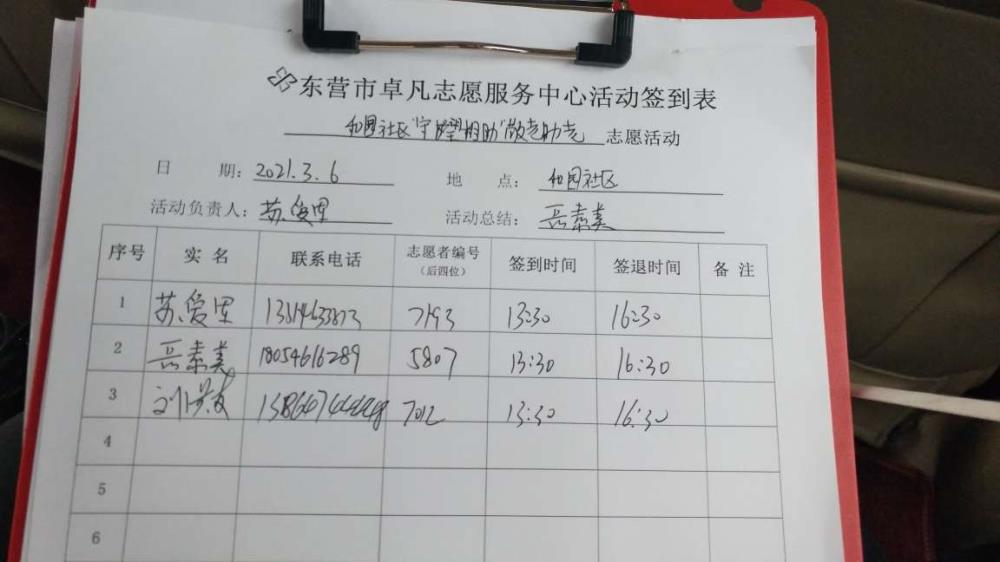 东营市卓凡志愿服务中心活动签到表
和园社区"守望相助"敬老助老 志愿活动
日 期: 2021.3.6 地 点: 和园社区
活动负责人: 苏爱军 活动总结: 岳素美
序号 实 名 联系电话 志愿者编号（后四位） 签到时间 签退时间 备 注
1 苏爱军 7193 13:30 16:30
2 岳素美 18054616289 5807 13:30 16:30
3 7012 13:30 16:30
4
5
6